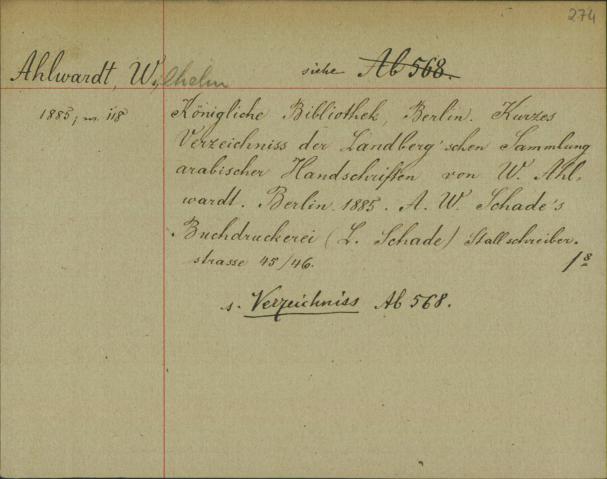 274
Ahlwardt, Wilhelm siehe Ab 568.
1885; m. 118
Königliche Bibliothek, Berlin. Kurzes
Verzeichniss der Landberg'schen Sammlung
arabischer Handschriften von W. Ahl-
wardt. Berlin 1885. A. W. Schade's
Buchdruckerei (L. Schade) Stallschreiber-
strasse 45/46. 1 8
s. Verzeichniss Ab 568.